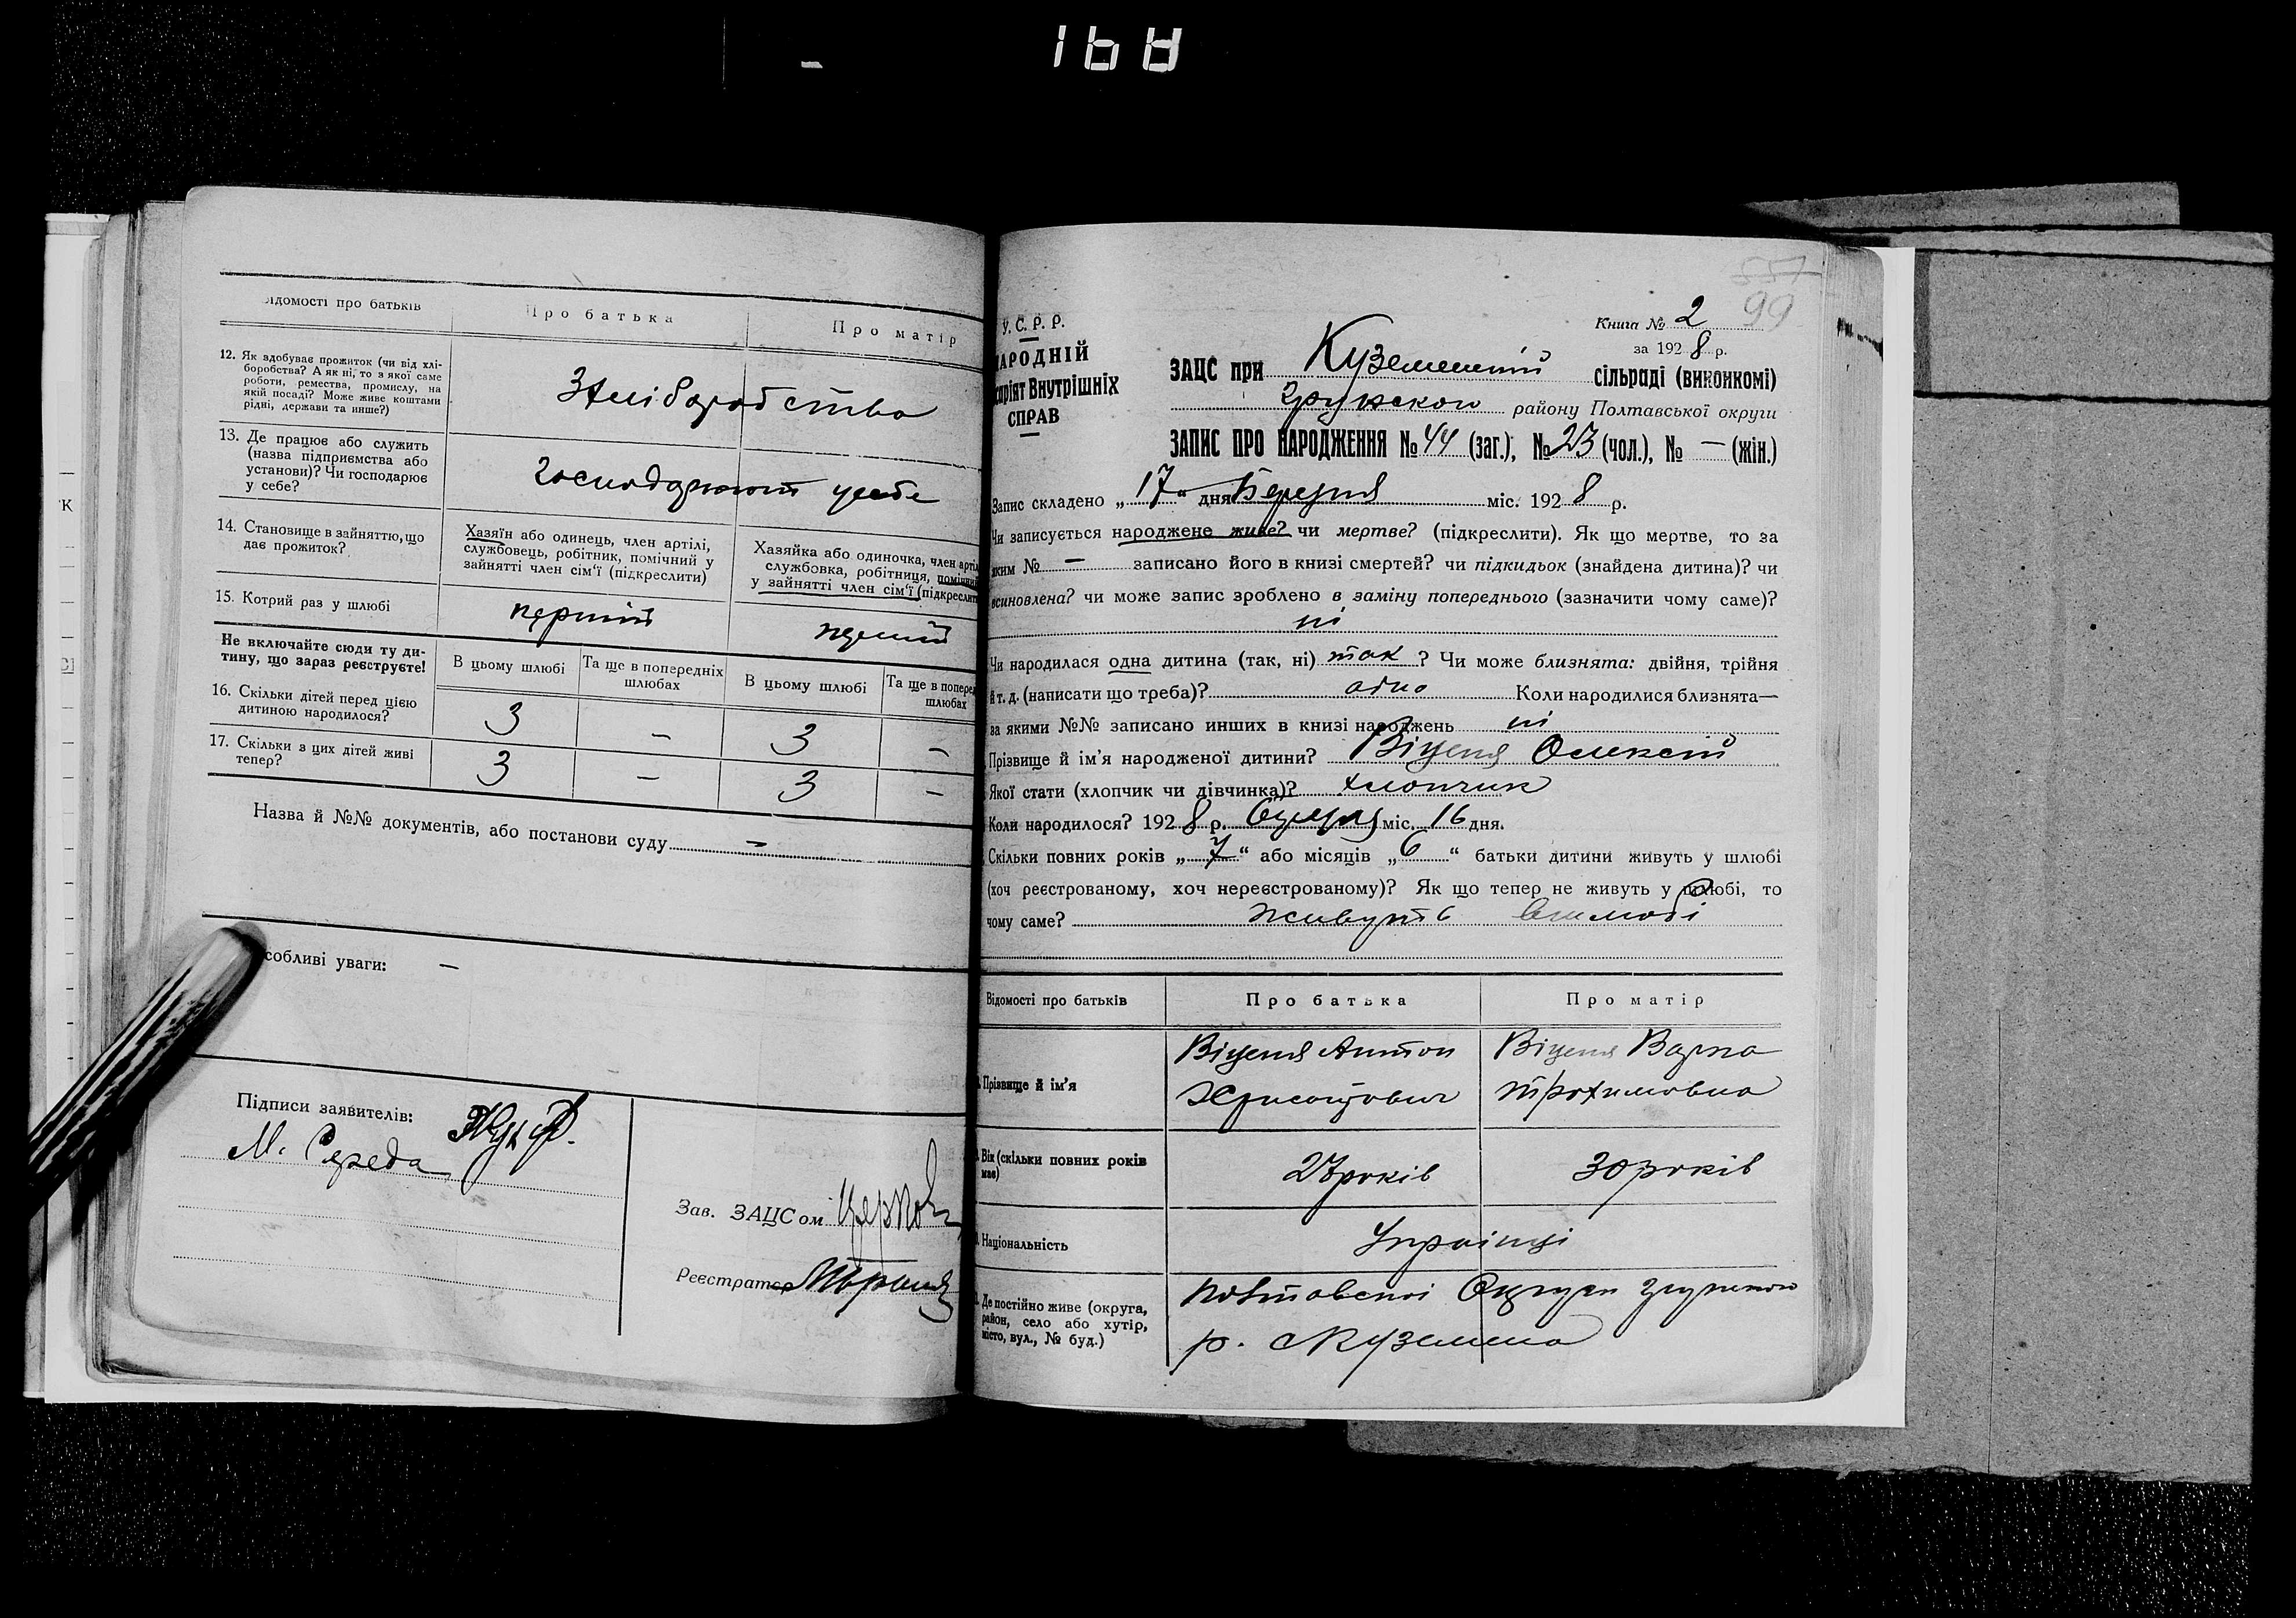 168
ідомості про батьків
Про батька
Про матір
12. Як здобуває прожиток (чи від хлі-
боробства? А як ні, то з якої саме
роботи, ремества, промислу, на
якій посаді? Може живе коштами
рідні, держави та инше?)
Зхліборобства
13. Де працює або служить
(назва підприємства або
установи)? Чи господарює
у себе?
господарюют у себе
14. Становище в зайняттю, що
дає прожиток?
Хазяїн або одинець, член артілі,
службовець, робітник, помічний у
зайнятті член сім'ї (підкреслити)
Хазяйка або одиночка, член арті
службовка, робітниця, помічни
у зайнятті член сім'ї (підкресли
15. Котрий раз у шлюбі
перший
перший
Не включайте сюди ту ди-
тину, що зараз реєструєте!
В цьому шлюбі
Та ще в попередніх
шлюбах
В цьому шлюбі
Та ще в попере
шлюбах
16. Скільки дітей перед цією
дитиною народилося?
3 – 3 –
17. Скільки з цих дітей живі
тепер?
3 – 3 –
Назва й №№ документів, або постанови суду –
собливі уваги: –
Підписи заявителів:
М. Середа
Зав. ЗАЦСом
Реєстратор
557
99
У. С. Р. Р.
НАРОДНІЙ
аріят Внутрішніх
СПРАВ
Книга № 2
за 1928 р.
ЗАЦС при Куземенській сільраді (виконкомі)
Грунской району Полтавської округи
ЗАПИС ПРО НАРОДЖЕННЯ № 44 (заг.), № 23 (чол.), № – (жін.)
Запис складено „17" дня Березня міс. 1928 р.
Чи записується народжене живе? чи мертве? (підкреслити). Як що мертве, то за
яким № – записано його в книзі смертей? чи підкидьок (знайдена дитина)? чи
всиновлена? чи може запис зроблено в заміну попереднього (зазначити чому саме)?
ні
Чи народилася одна дитина (так, ні) так ? Чи може близнята: двійня, трійня
й т. д. (написати що треба)? одно Коли народилися близнята—
за якими №№ записано инших в книзі народжень ні
Прізвище й ім'я народженої дитини? Віценя Олексій
Якої стати (хлопчик чи дівчинка)? хлопчик
Коли народилося? 1928 р. міс. 16 дня.
Скільки повних років „7" або місяців „6" батьки дитини живуть у шлюбі
(хоч реєстрованому, хоч нереєстрованому)? Як що тепер не живуть у шлюбі, то
чому саме? живуть вшлюбі
Відомості про батьків
Про батька
Про матір
Прізвище й ім'я
Віценя Антон
Віценя Варка
Трохимовна
Вік (скільки повних років
має)
27 років
30 років
Національність
Українці
Де постійно живе (округа,
район, село або хутір,
місто, вул., № буд.)
Полтавської Округи Грунского
р. с Куземена